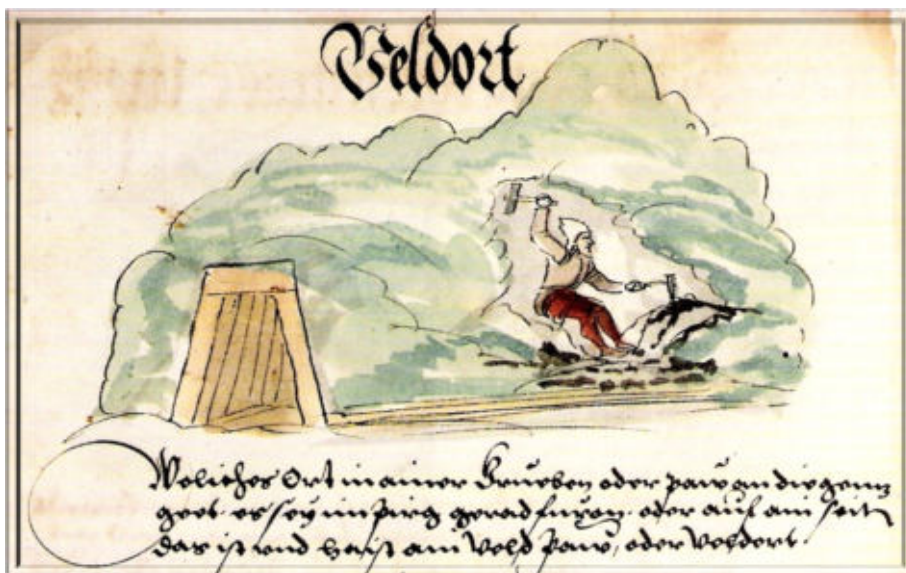 Veldort
Weliches Ort in ainer Grueben oder paw an die genntz
geet. es sey im pirg gerad furan. oder auf ain seitn
das ist und haist ain Veld paw, oder Veldort.